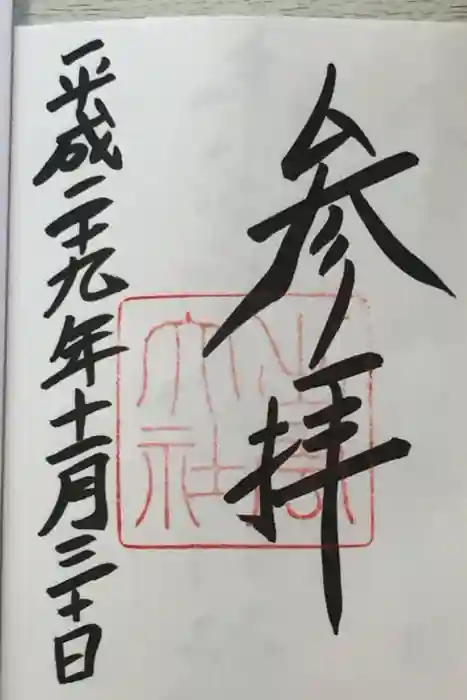 参拝
大社
平成二十九年十一月三十日